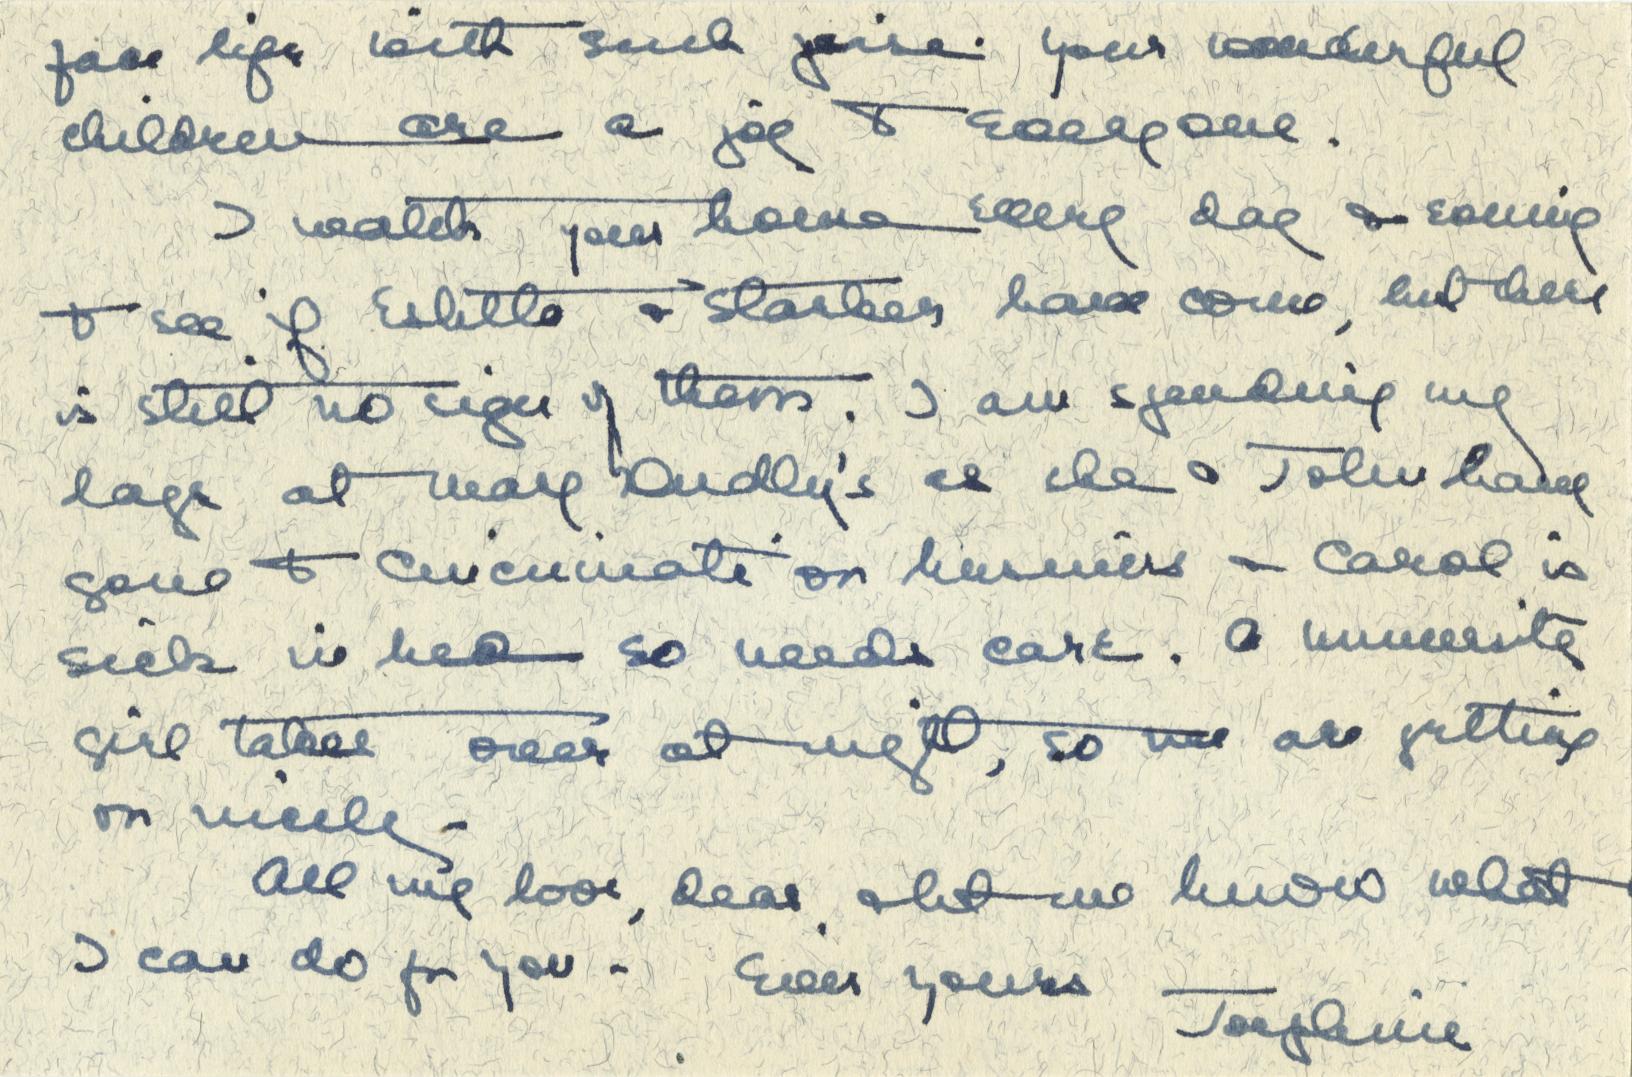 face life with such poise. Your wonderful
children are a joy to everyone.
I watch your house every day & evening
to see if & Starker have come, but there
is still no sign of them. I am spending my
days at Mary Dudley's as she & John have
gone to Cincinnati on business & Carol is
sick in bed so needs care. A university
girl takes over at night, so we are getting
on nicely -
All my love, dear, & let me know what
I can do for you - Ever yours
Josephine